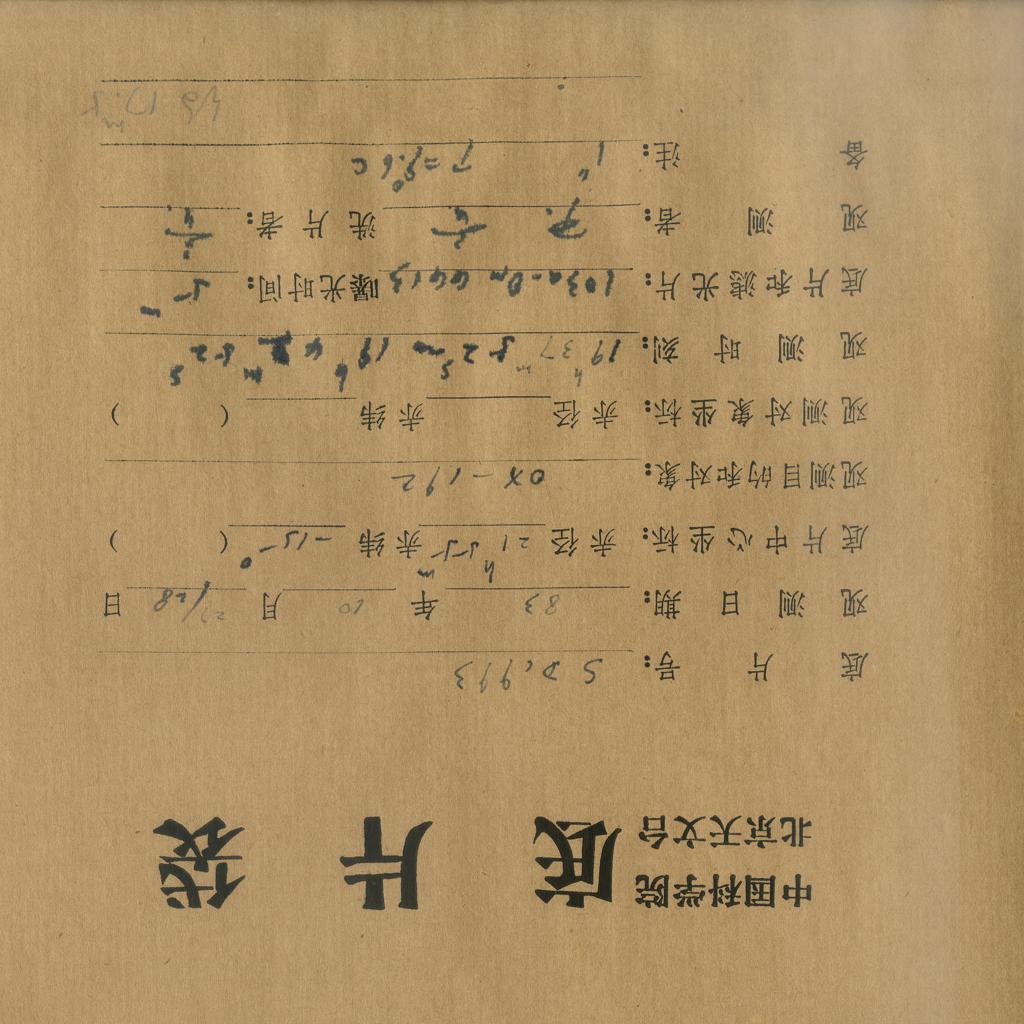 中国科学院
北京天文台
底 片 袋
底片号:
观测日期: 83 年 10 月 27/28 日
底片中心坐标: 赤径 21h 55m 赤纬 -15° ( )
观测目的和对象: OX-192
观测对象坐标: 赤径 赤纬 ( )
观测时刻: 19h 37m 52s
底片和滤光片: 103a-O 曝光时间: 5m
观测者: 洗片者:
备注: T=9.6°C